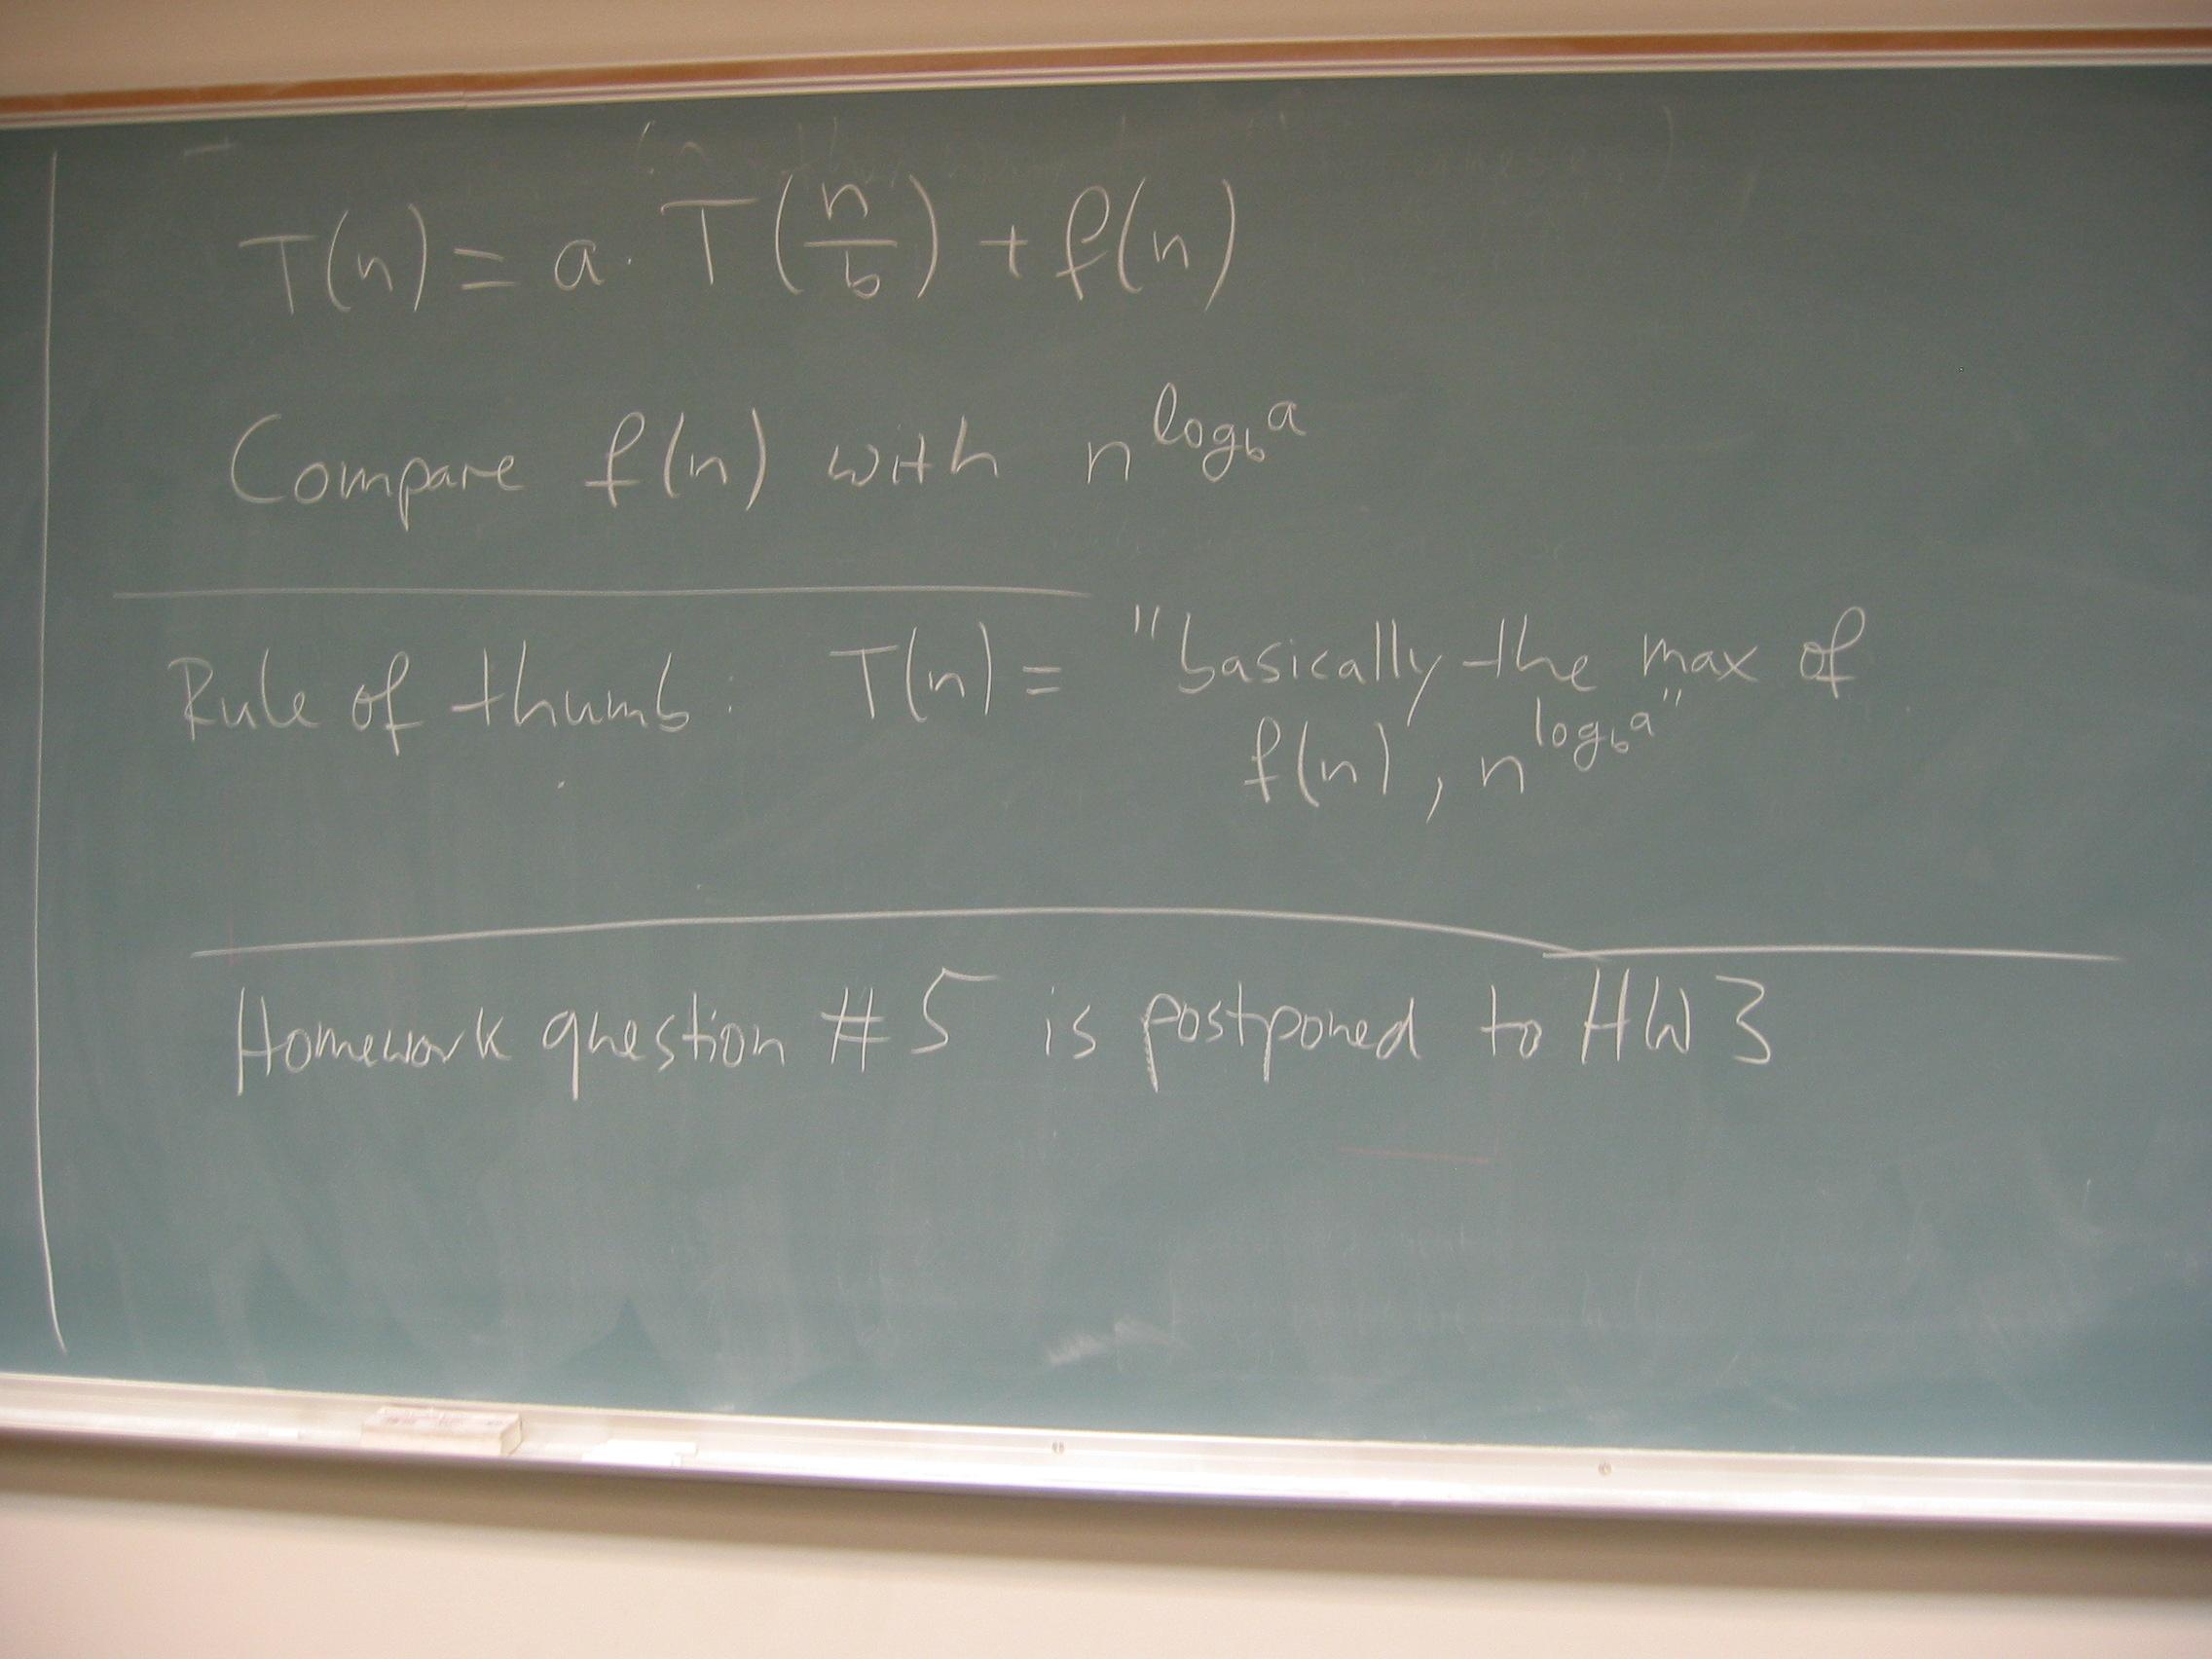 T(n) = a · T(n/b) + f(n)
Compare f(n) with n^log_b a
Rule of thumb: T(n) = "basically the max of
f(n), n^log_b a"
Homework question #5 is postponed to HW3